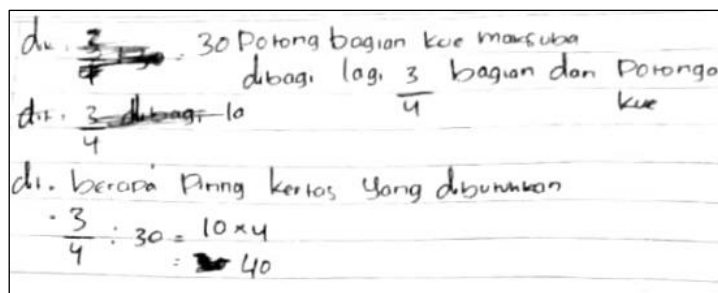 dik. 30 Potong bagian kue maksuba
dibagi lagi 3/4 bagian dan Potonga
kue
dit. 3/4
di. berapa Piring kertas yang dibutuhkan
. 3/4 : 30 = 10 × 4
= 40